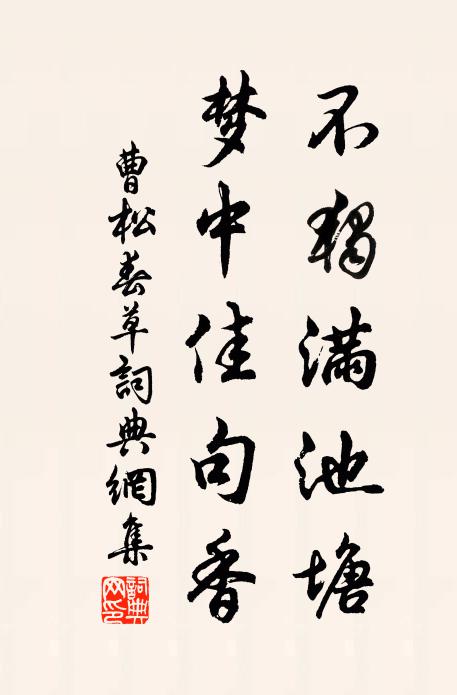 不独满池塘
梦中佳句香
曹松春草詞典網集
詞典网印